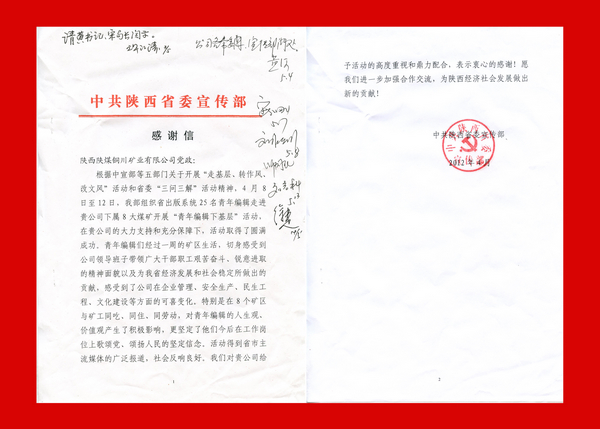 请黄书记、宋局长阅示。
5.4
5.7
5.8
中共陕西省委宣传部
感谢信
陕西陕煤铜川矿业有限公司党政:
根据中宣部等五部门关于开展“走基层、转作风、
改文风”活动和省委“三问三解”活动精神,4 月 8
日至 12 日,我部组织省出版系统 25 名青年编辑走进
贵公司下属 8 大煤矿开展“青年编辑下基层”活动。
在贵公司的大力支持和充分保障下,活动取得了圆满
成功。青年编辑们经过一周的矿区生活,切身感受到
公司领导班子带领广大干部职工艰苦奋斗、锐意进取
的精神面貌以及为我省经济发展和社会稳定所做出的
贡献,感受到了公司在企业管理、安全生产、民生工
程、文化建设等方面的可喜变化。特别是在 8 个矿区
与矿工同吃、同住、同劳动,对青年编辑的人生观、
价值观产生了积极影响,更坚定了他们今后在工作岗
位上歌颂党、颂扬人民的坚定信念。活动得到省市主
流媒体的广泛报道,社会反响良好。我们对贵公司给
1
子活动的高度重视和鼎力配合,表示衷心的感谢!愿
我们进一步加强合作交流,为陕西经济社会发展做出
新的贡献!
中共陕西省委宣传部
宣传部
2012 年 4 月
2